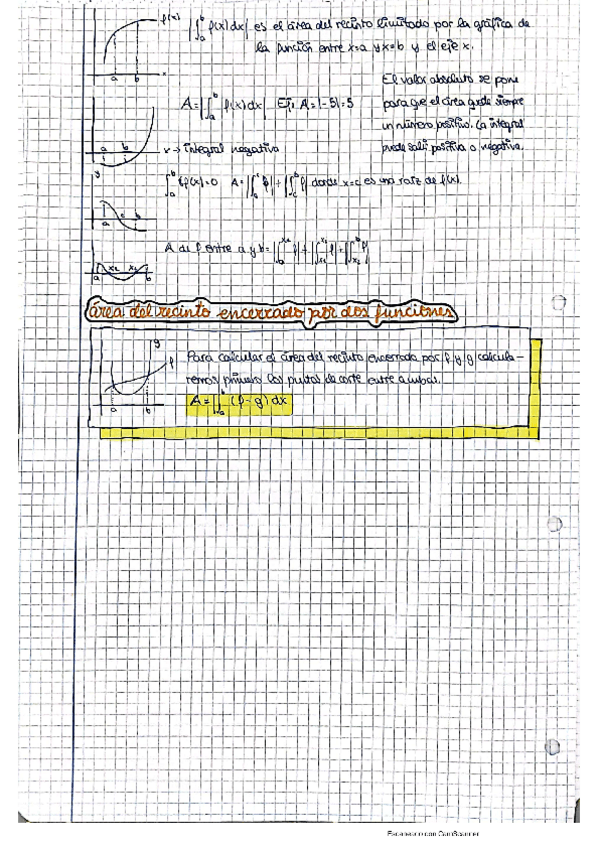 f(x) |∫ₐᵇ f(x)dx| es el área del recinto limitado por la gráfica de
la función entre x=a y x=b y el eje x.
a b x
A=|∫ₐᵇ f(x)dx| Ej: A=|-5|=5
El valor absoluto se pone
para que el área quede siempre
un número positivo. La integral
puede salir positiva o negativa.
a b x → integral negativa
y ∫ₐᵇ f(x)=0 A=|∫ₐᶜ f|+|∫ᶜᵇ f| donde x=c es una raíz de f(x).
a c b
A de f entre a y b=
a x₁ x₂ b
área del recinto encerrado por dos funciones
g f
Para calcular el área del recinto encerrado por f y g calcula-
remos primero los puntos de corte entre ambas.
a b
A=|∫ₐᵇ (f-g) dx
Escaneado con CamScanner